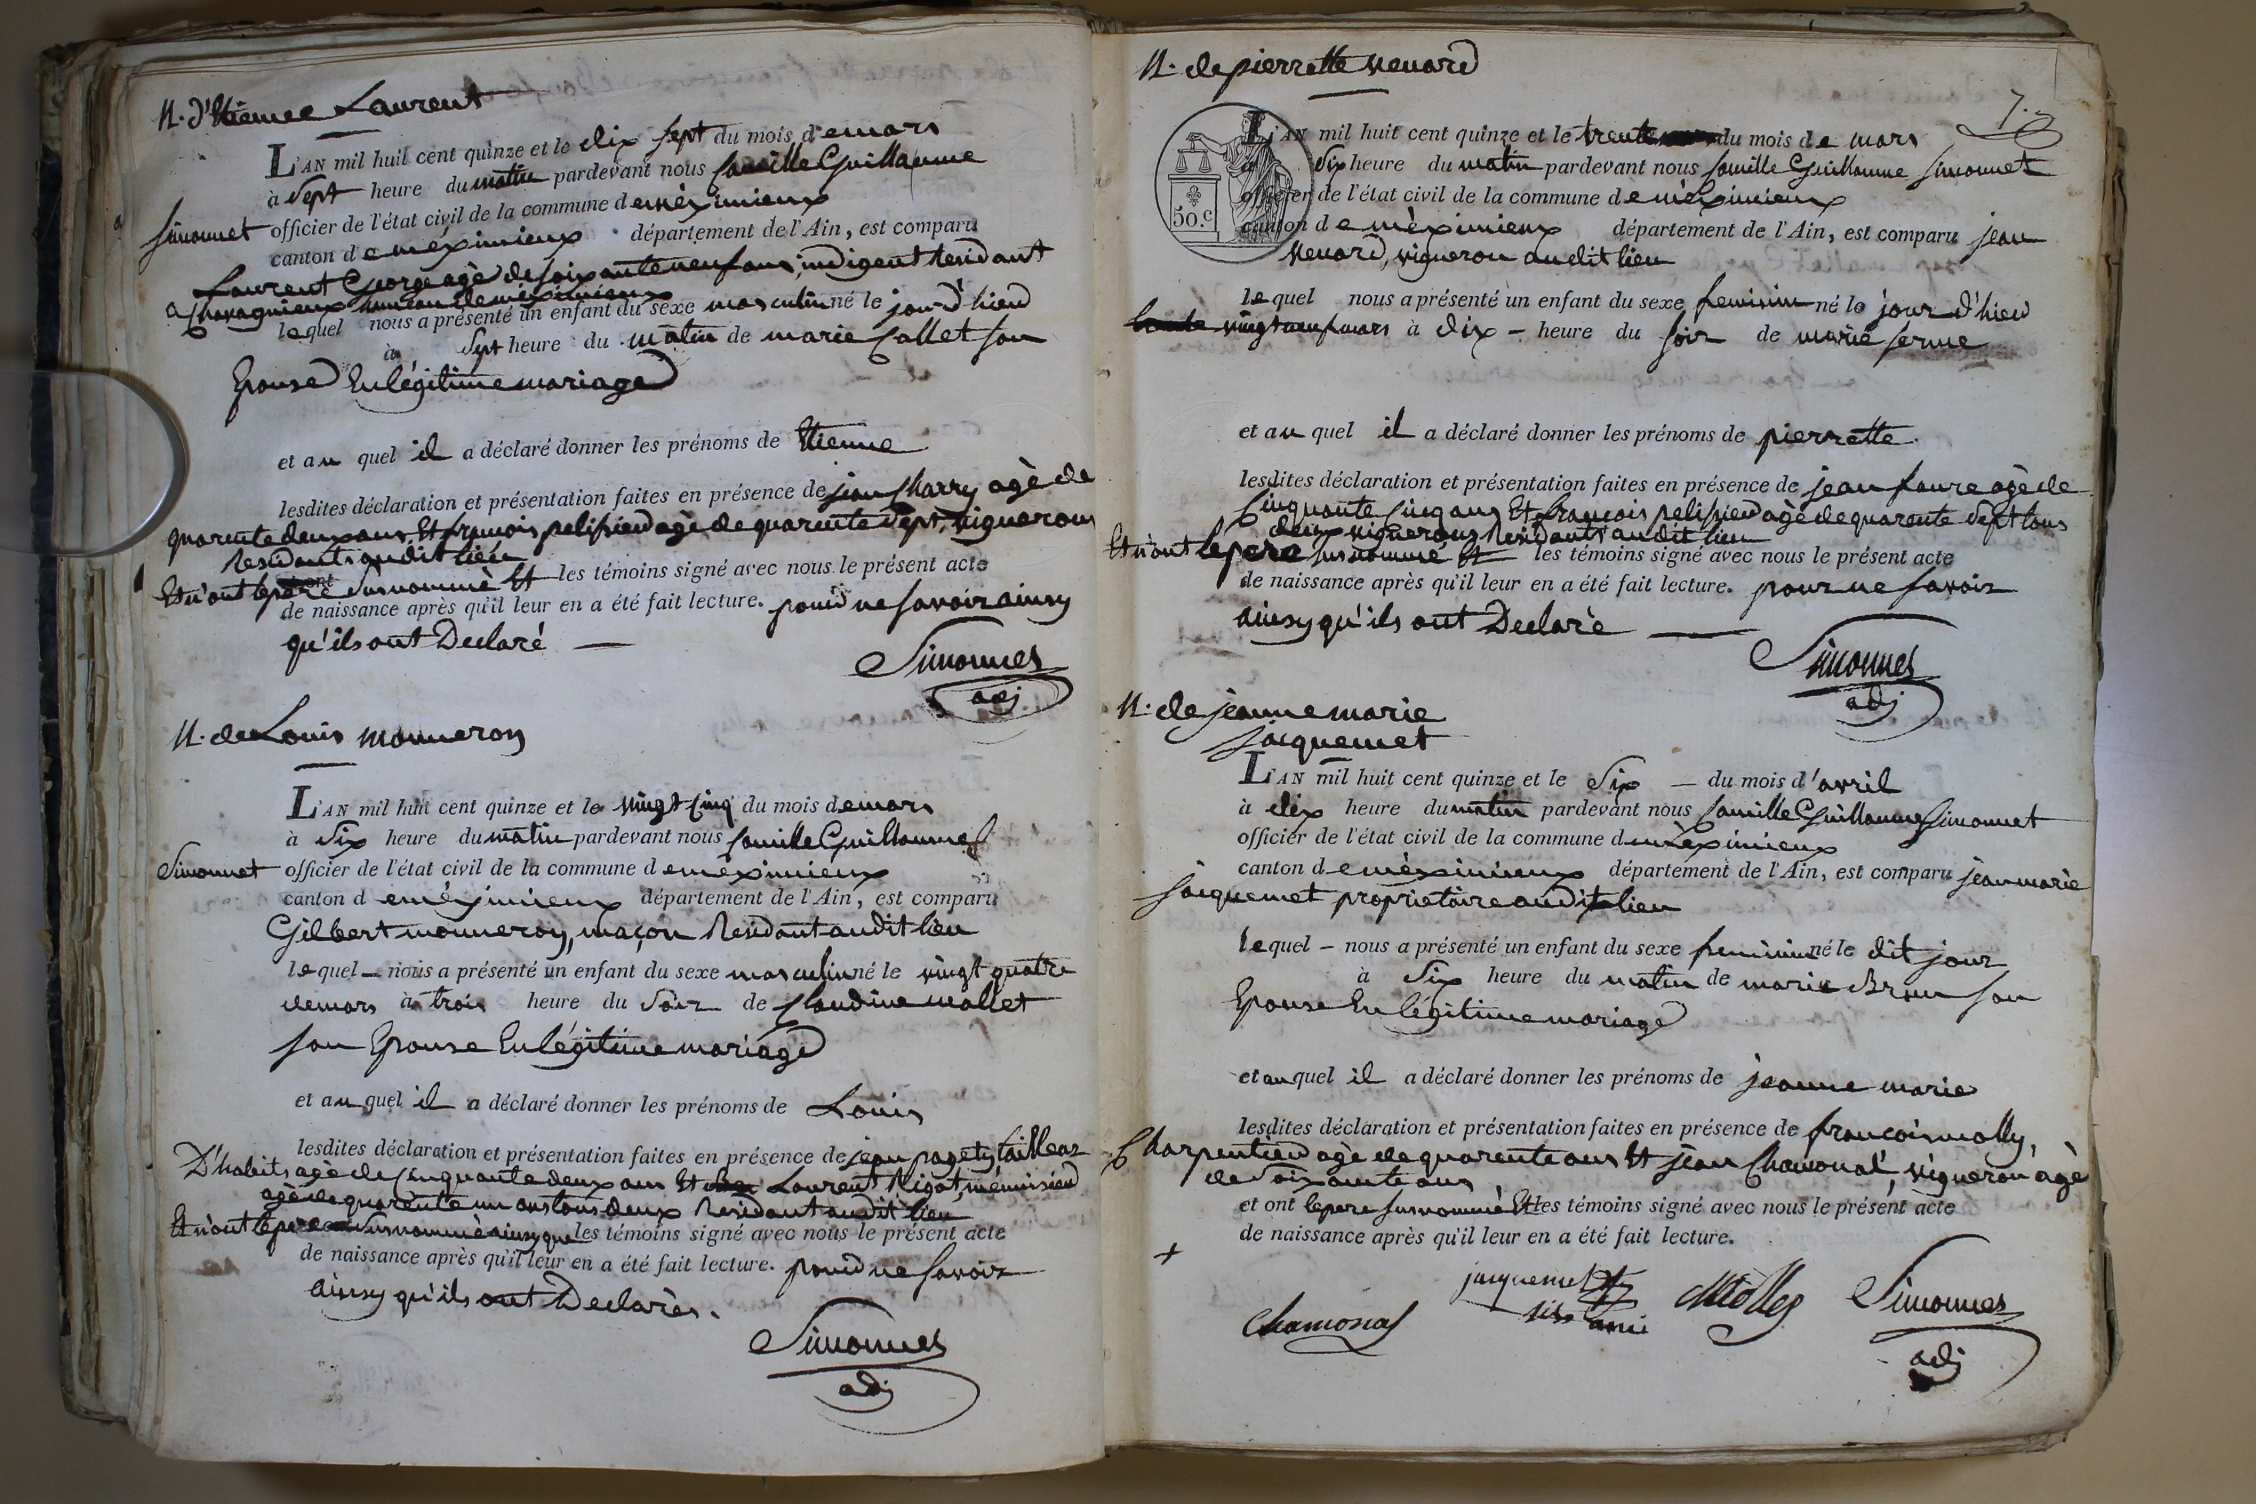 N. d'Etienne Laurent
L'AN mil huit cent quinze et le dix sept du mois de mars
à sept heure du matin pardevant nous Camille Guillaume
Simonnet officier de l'état civil de la commune de méximieux
canton de méximieux département de l'Ain, est comparu
Laurent George agè de soixante neuf ans, indigent Residant
a Chavagnieux hameau de méximieux
lequel nous a présenté un enfant du sexe masculin né le jour d'hier
à sept heure du matin de marie Collet son
Epouse En légitime mariage
et au quel il a déclaré donner les prénoms de Etienne
lesdites déclaration et présentation faites en présence de jean Charry agè de
quarente deux ans, Et françois pelissier agè de quarente sept, vignerons
Residants au dit lieu
Et n'ont le père susnommè Et les témoins signé avec nous le présent acte
de naissance après qu'il leur en a été fait lecture. pour ne savoir ainsy
qu'ils ont Declaré
Simonnet
adj
N. de Louis Monneron
L'AN mil huit cent quinze et le vingt cinq du mois de mars
à six heure du matin pardevant nous Camille Guillaume
Simonnet officier de l'état civil de la commune de méximieux
canton de méximieux département de l'Ain, est comparu
Gilbert monneron, maçon Residant au dit lieu
lequel nous a présenté un enfant du sexe masculin né le vingt quatre
de mars à trois heure du soir de Claudine mollet
son Epouse En légitime mariage
et au quel il a déclaré donner les prénoms de Louis
lesdites déclaration et présentation faites en présence de jean pagety tailleur
D'habits agè de Cinquante deux ans Et Laurent Rigot,ménuisier
agè de quarente un ans tous deux Residant au dit lieu
Et n'ont le pere susnommé ainsy que les témoins signé avec nous le présent acte
de naissance après qu'il leur en a été fait lecture. pour ne savoir
ainsy qu'ils ont Declarés.
Simonnet
adj
N. de pierrette Venard
7.
L'AN mil huit cent quinze et le trente du mois de mars
à six heure du matin pardevant nous Camille Guillaume Simonnet
50.c
officier de l'état civil de la commune de méximieux
canton de méximieux département de l'Ain, est comparu jean
Venard, vigneron au dit lieu
lequel nous a présenté un enfant du sexe feminin né le jour d'hier
vingt neuf mars à dix heure du soir de marie ferme
et au quel il a déclaré donner les prénoms de pierrette.
lesdites déclaration et présentation faites en présence de jean faure agè de
Cinquante Cinq ans Et françois pelissier agè de quarente sept tous
deux vignerons Residants au dit lieu
Et n'ont le pere susnommé Et les témoins signé avec nous le présent acte
de naissance après qu'il leur en a été fait lecture. pour ne savoir
ainsy qu'ils ont Declarè
Simonnet
adj
N. de jeanne marie
jacquemet
L'AN mil huit cent quinze et le six du mois d'avril
à dix heure du matin pardevant nous Camille Guillaume Simonnet
officier de l'état civil de la commune de méximieux
canton de méximieux département de l'Ain, est comparu jean marie
jacquemet proprietaire au dit lieu
lequel nous a présenté un enfant du sexe feminin né le dit jour
à six heure du matin de marie Brun son
Epouse En légitime mariage
et au quel il a déclaré donner les prénoms de jeanne marie
lesdites déclaration et présentation faites en présence de françois molly,
Charpentier agè de quarente ans Et jean Chamonal, vigneron agè
de soixante ans
et ont le pere susnommé, Et les témoins signé avec nous le présent acte
de naissance après qu'il leur en a été fait lecture.
jacquemet
Chamonal
Simonnet
adj